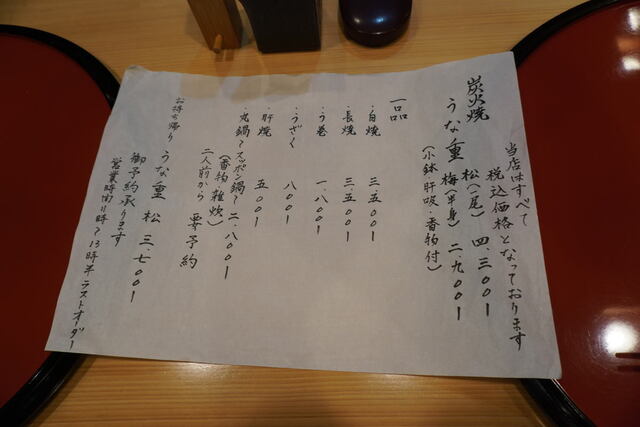 当店はすべて
税込価格となっております
炭火焼
うな重 松(一尾) 四、三〇〇一
梅(半身) 二、九〇〇一
(小鉢・肝吸・香物付)
一品
・白焼 三、五〇〇一
・長焼 三、五〇〇一
・う巻 一、八〇〇一
・うざく 八〇〇一
・肝焼 五〇〇一
・丸鍋〜スッポン鍋〜 二、八〇〇一
(香物・雑炊)
二人前から 要予約
お持ち帰り
うな重 松 三、七〇〇一
御予約承ります
営業時間11時〜13時半ラストオーダー